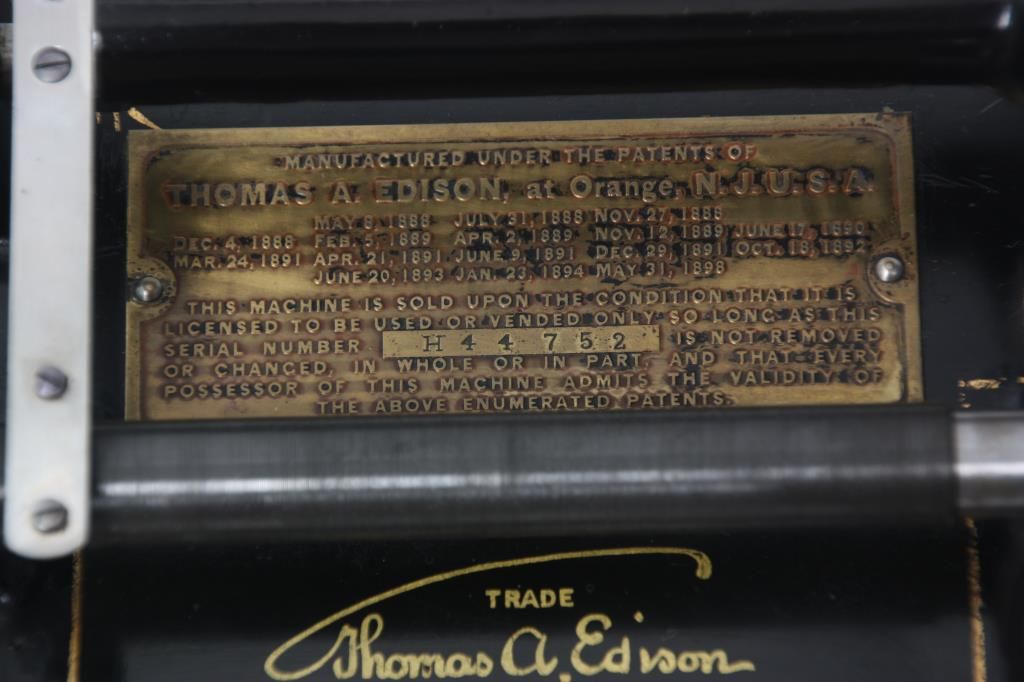 MANUFACTURED UNDER THE PATENTS OF
THOMAS A. EDISON, at Orange, N.J.U.S.A.
MAY 8, 1888 JULY 31, 1888 NOV. 27, 1888
DEC. 4, 1888 FEB. 5, 1889 APR. 2, 1889 NOV. 12, 1889 JUNE 17, 1890
MAR. 24, 1891 APR. 21, 1891 JUNE 9, 1891 DEC. 29, 1891 OCT. 18, 1892
JUNE 20, 1893 JAN. 23, 1894 MAY 31, 1898
THIS MACHINE IS SOLD UPON THE CONDITION THAT IT IS
LICENSED TO BE USED OR VENDED ONLY SO LONG AS THIS
SERIAL NUMBER H44752 IS NOT REMOVED
OR CHANGED, IN WHOLE OR IN PART, AND THAT EVERY
POSSESSOR OF THIS MACHINE ADMITS THE VALIDITY OF
THE ABOVE ENUMERATED PATENTS.
TRADE
Thomas A. Edison